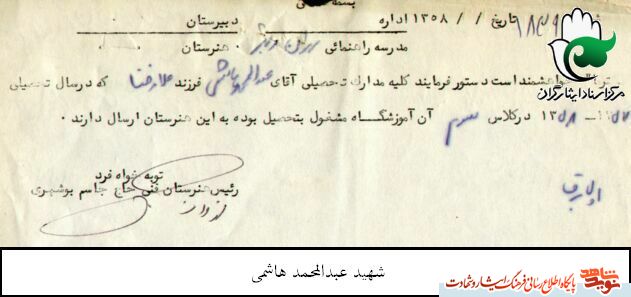 بسمه تعالی
تاریخ / / ۱۳۵۸ اداره دبیرستان
۱۸۳۹
مدرسه راهنمائی هنرستان
خواهشمند است دستور فرمایند کلیه مدارک تحصیلی آقای عبدالمحمد هاشمی فرزند غلامرضا که در سال تحصیلی
۱۳۵۷ – ۱۳۵۸ در کلاس سوم آن آموزشگاه مشغول بتحصیل بوده به این هنرستان ارسال دارند ۰
توبه خواه فرد
رئیس هنرستان فنی حاج جاسم بوشهری
مرکز اسناد ایثارگران
شهید عبدالمحمد هاشمی
نوید شاهد
پایگاه اطلاع رسانی فرهنگ ایثار و شهادت